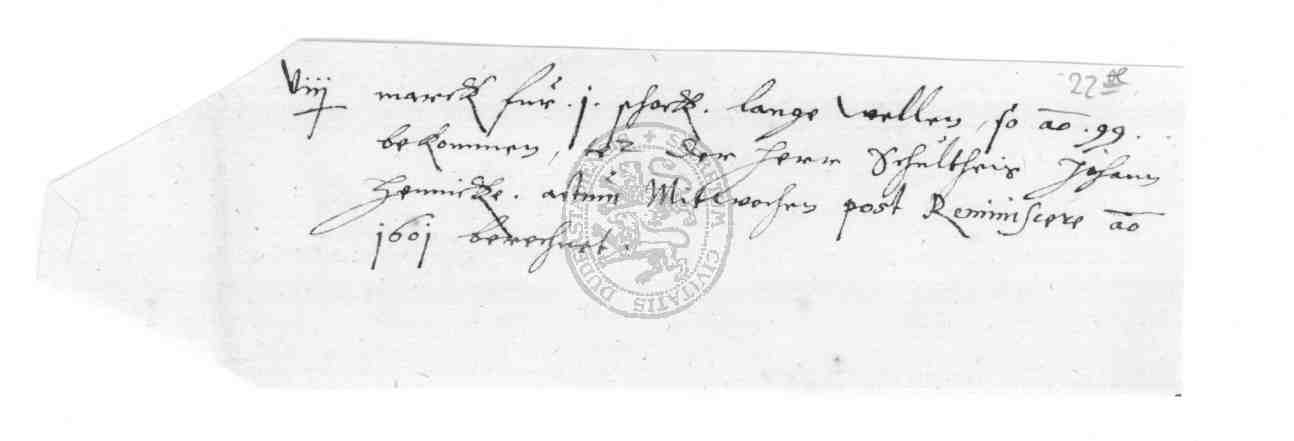 22
Viij marck für .j. schock. lange wellen, so ao .99.
bekommen, der Herr Schultheis Johann
Hennicke. actum Mitwochen post Reminiscere ao
1601 berechnet.
SIGILLUM CIVITATIS DUDERST